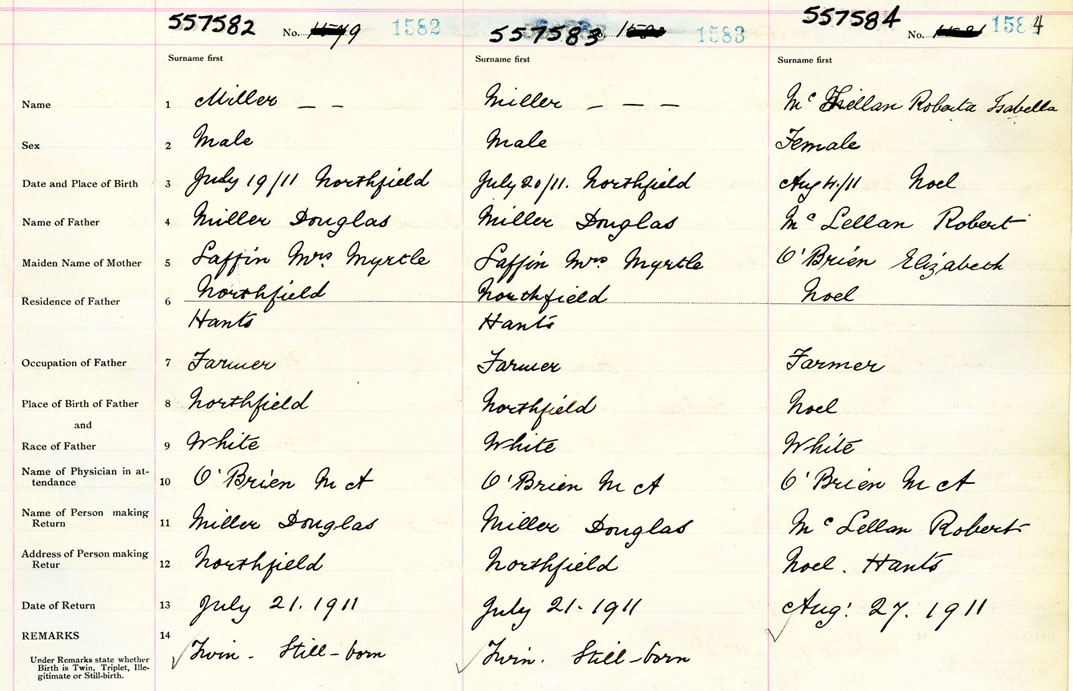 557582 No. 9 1582 557583 1583 557584 No. 1584
Surname first Surname first Surname first
Name 1 Miller – – Miller – – – McLellan Roberta Isabella
Sex 2 Male Male Female
Date and Place of Birth 3 July 19/11 Northfield July 20/11. Northfield Aug 4/11 Noel
Name of Father 4 Miller Douglas Miller Douglas McLellan Robert
Maiden Name of Mother 5 Laffin Mrs Myrtle Laffin Mrs Myrtle O'Brien Elizabeth
Residence of Father 6 Northfield Northfield Noel
Hants Hants
Occupation of Father 7 Farmer Farmer Farmer
Place of Birth of Father 8 Northfield Northfield Noel
and
Race of Father 9 White White White
Name of Physician in at-
tendance 10 O'Brien M A O'Brien M A O'Brien M A
Name of Person making
Return 11 Miller Douglas Miller Douglas McLellan Robert
Address of Person making
Retur 12 Northfield Northfield Noel. Hants
Date of Return 13 July 21. 1911 July 21-1911 Aug: 27. 1911
REMARKS 14 Twin. Still-born Twin. Still-born
Under Remarks state whether
Birth is Twin, Triplet, Ille-
gitimate or Still-birth.